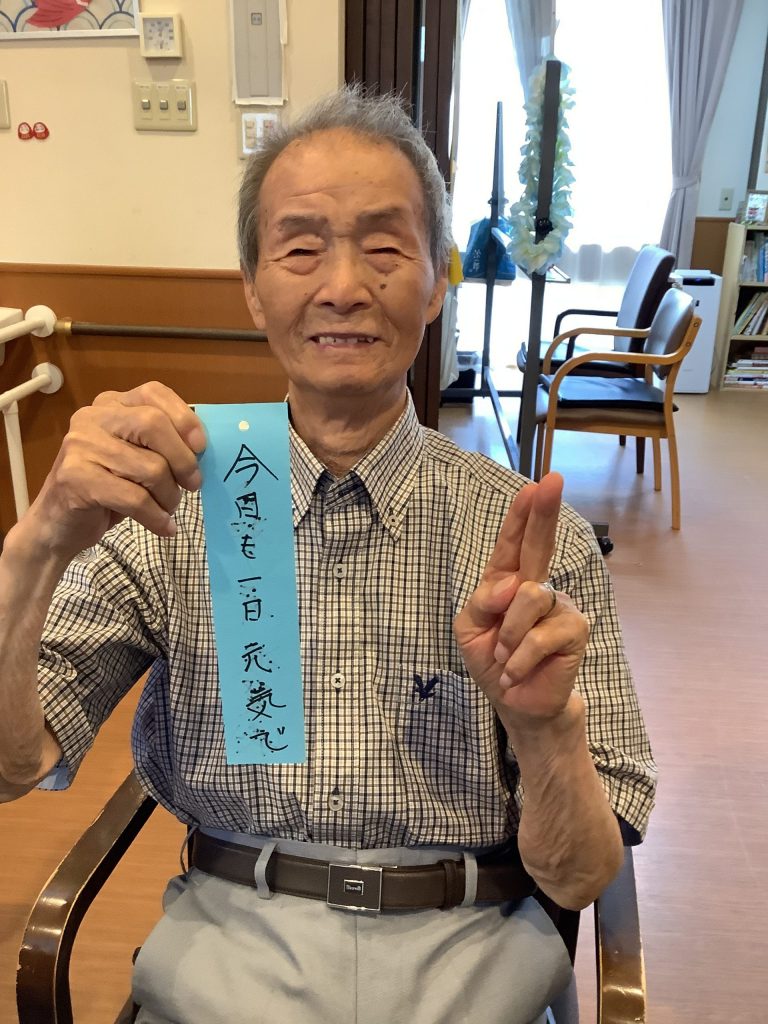 今日も一日元気で